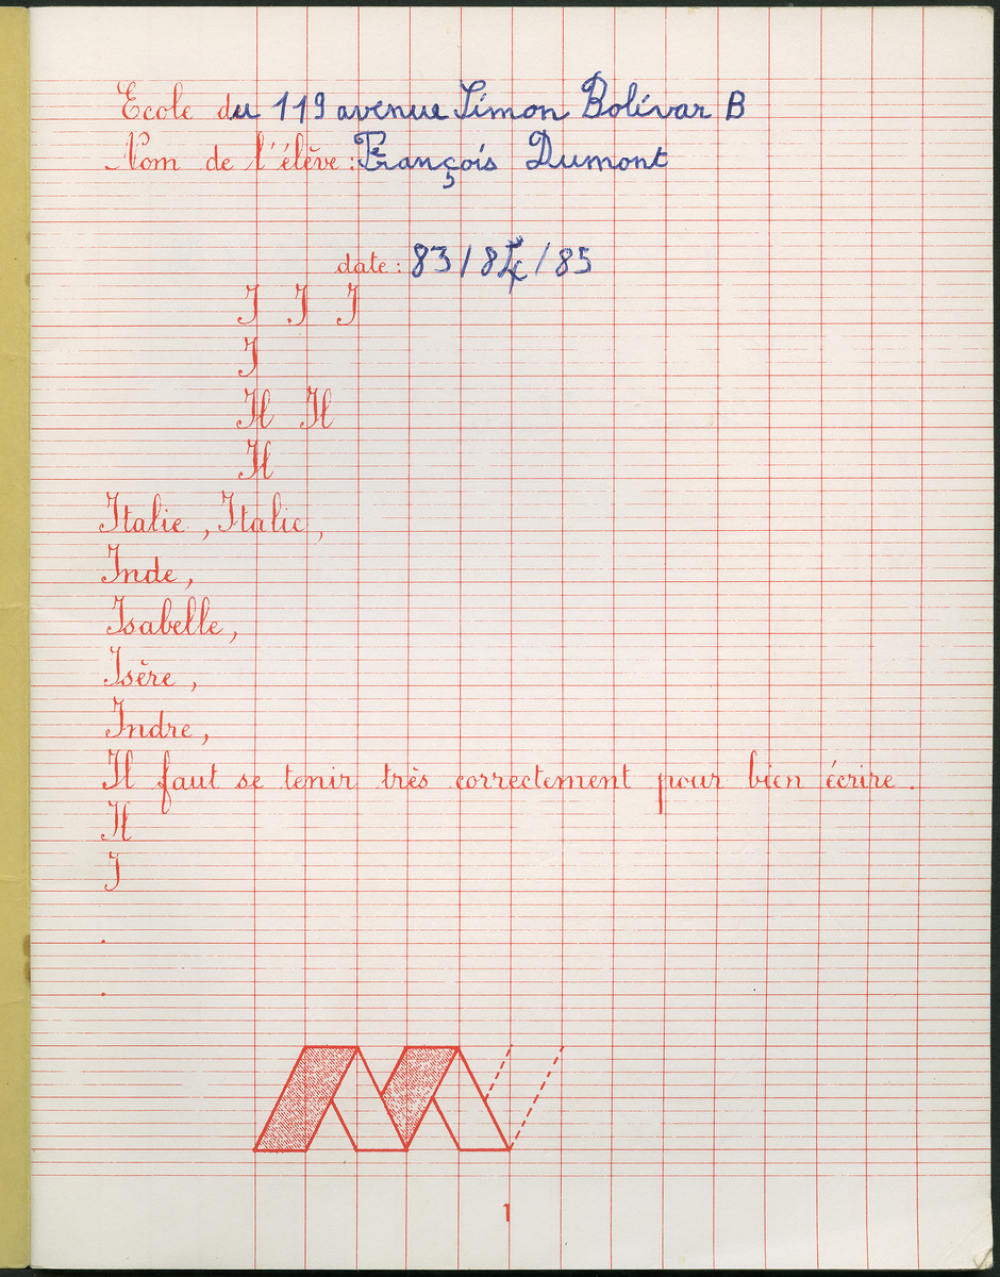 Ecole du 119 avenue Simon Bolivar B
Nom de l'élève : François Dumont
date : 83 / 84 / 85
I I I
I
Il Il
Il
Italie , Italie ,
Inde ,
Isabelle ,
Isère ,
Indre ,
Il faut se tenir très correctement pour bien écrire .
Il
I
1